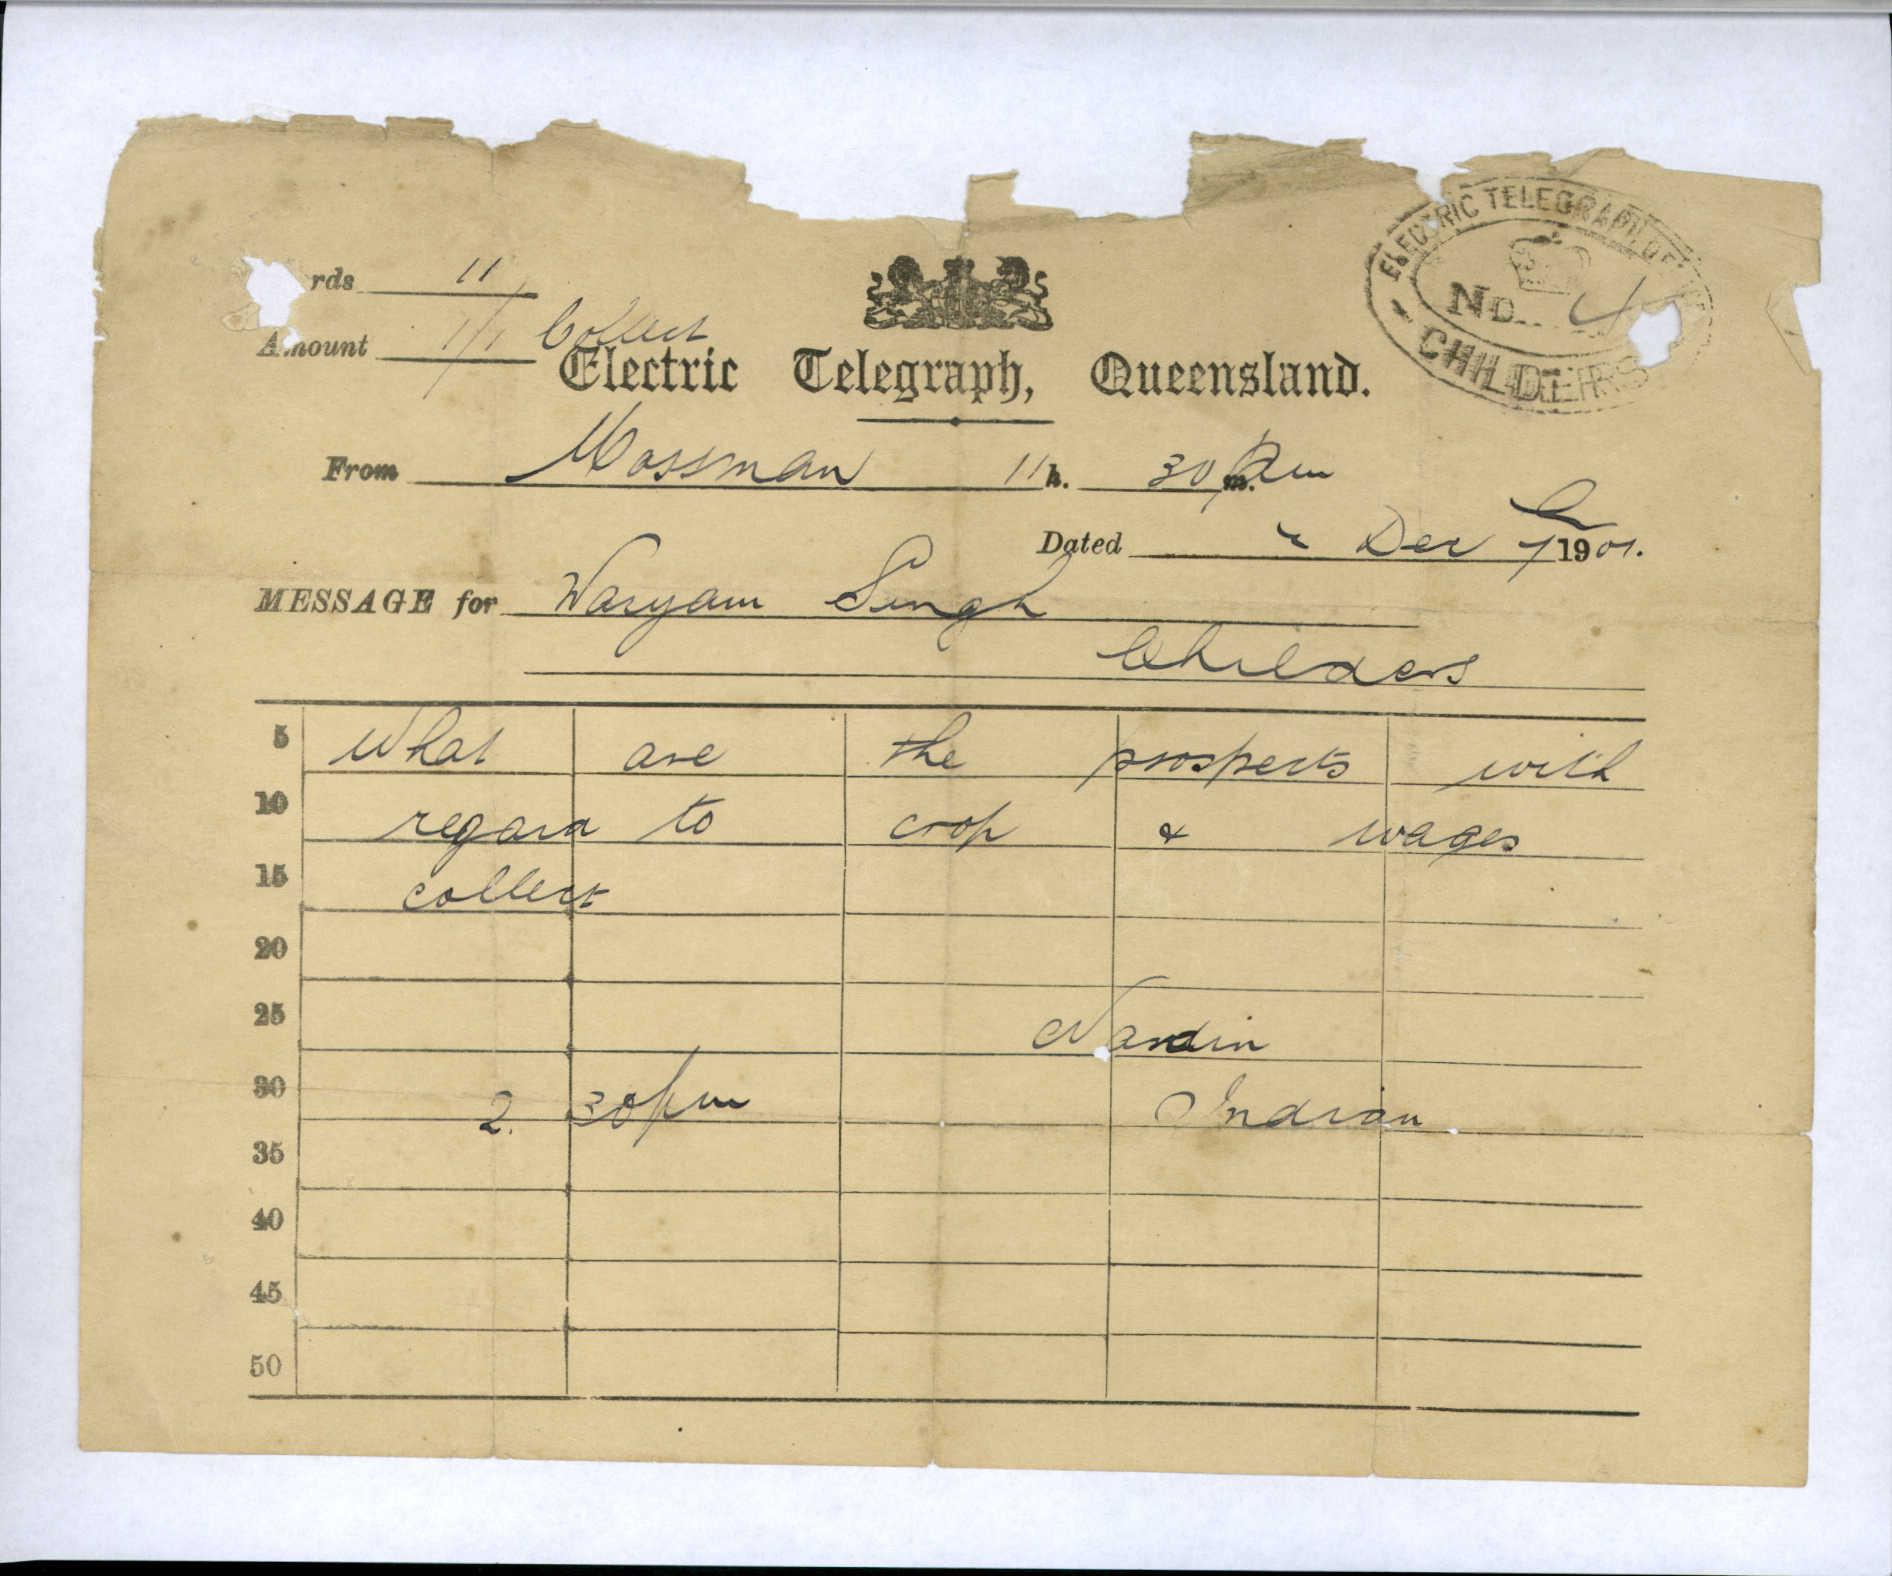 ELECTRIC TELEGRAPH
No. 4
CHILDERS
rds 11
Amount 1/1 Collect
Electric Telegraph, Queensland.
From Mossman 11 h. 30 m. am
Dated Dec 1901.
MESSAGE for Waryam Singh
Childers
5 What are the prospects with
10 regard to crop & wages
15 collect
20
25 Nandin
30 2. 30 pm Indian
35
40
45
50